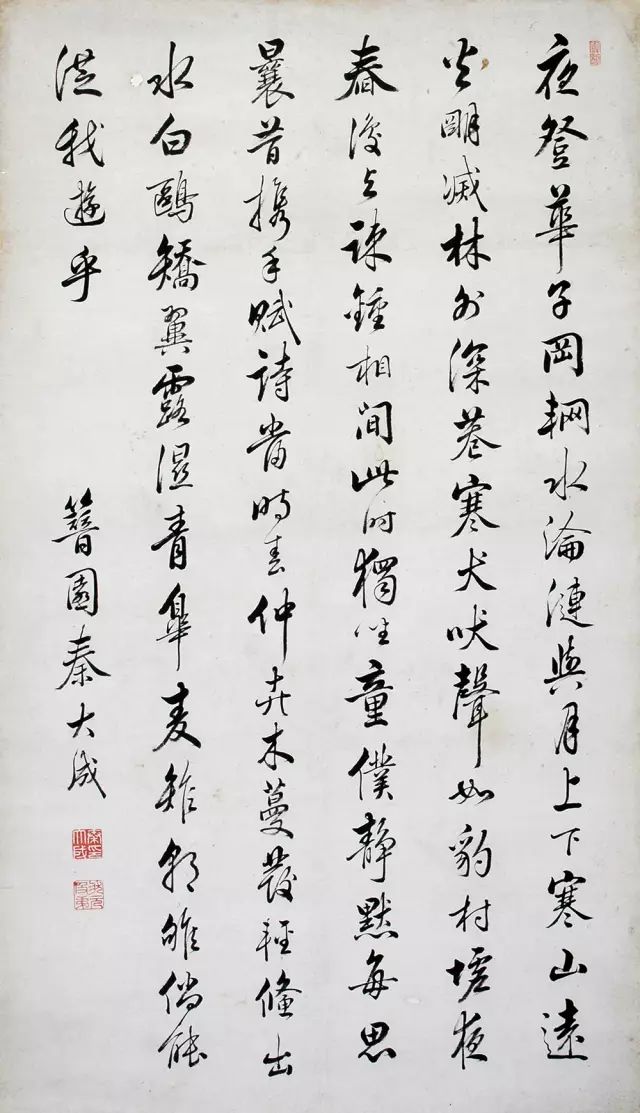 夜登華子岡輞水淪漣與月上下寒山遠
火明滅林外深巷寒犬吠聲如豹村墟夜
舂復與疎鍾相間此時獨坐童僕靜默每思
曩昔携手賦詩當時春仲卉木蔓發輕鯈出
水白鷗矯翼露濕青皋麥雉朝雊倘能
從我遊乎
簪園秦大成